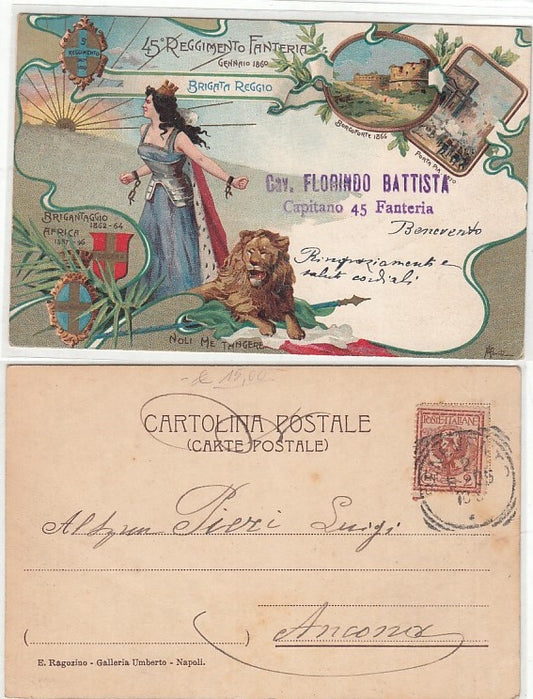 45° REGGIMENTO FANTERIA
GENNAIO 1860
BRIGATA REGGIO
REGGIMENTO
BORGOFORTE 1866
PORTA PIA 1870
Cav. FLORINDO BATTISTA
Capitano 45 Fanteria
Benevento
Ringraziamenti e
saluti cordiali
BRIGANTAGGIO
1862-64
AFRICA
1887-96
NOLI ME TANGERE
15,00
CARTOLINA POSTALE
(CARTE POSTALE)
POSTE ITALIANE
Pieri Luigi
Ancona
E. Ragozino - Galleria Umberto - Napoli.